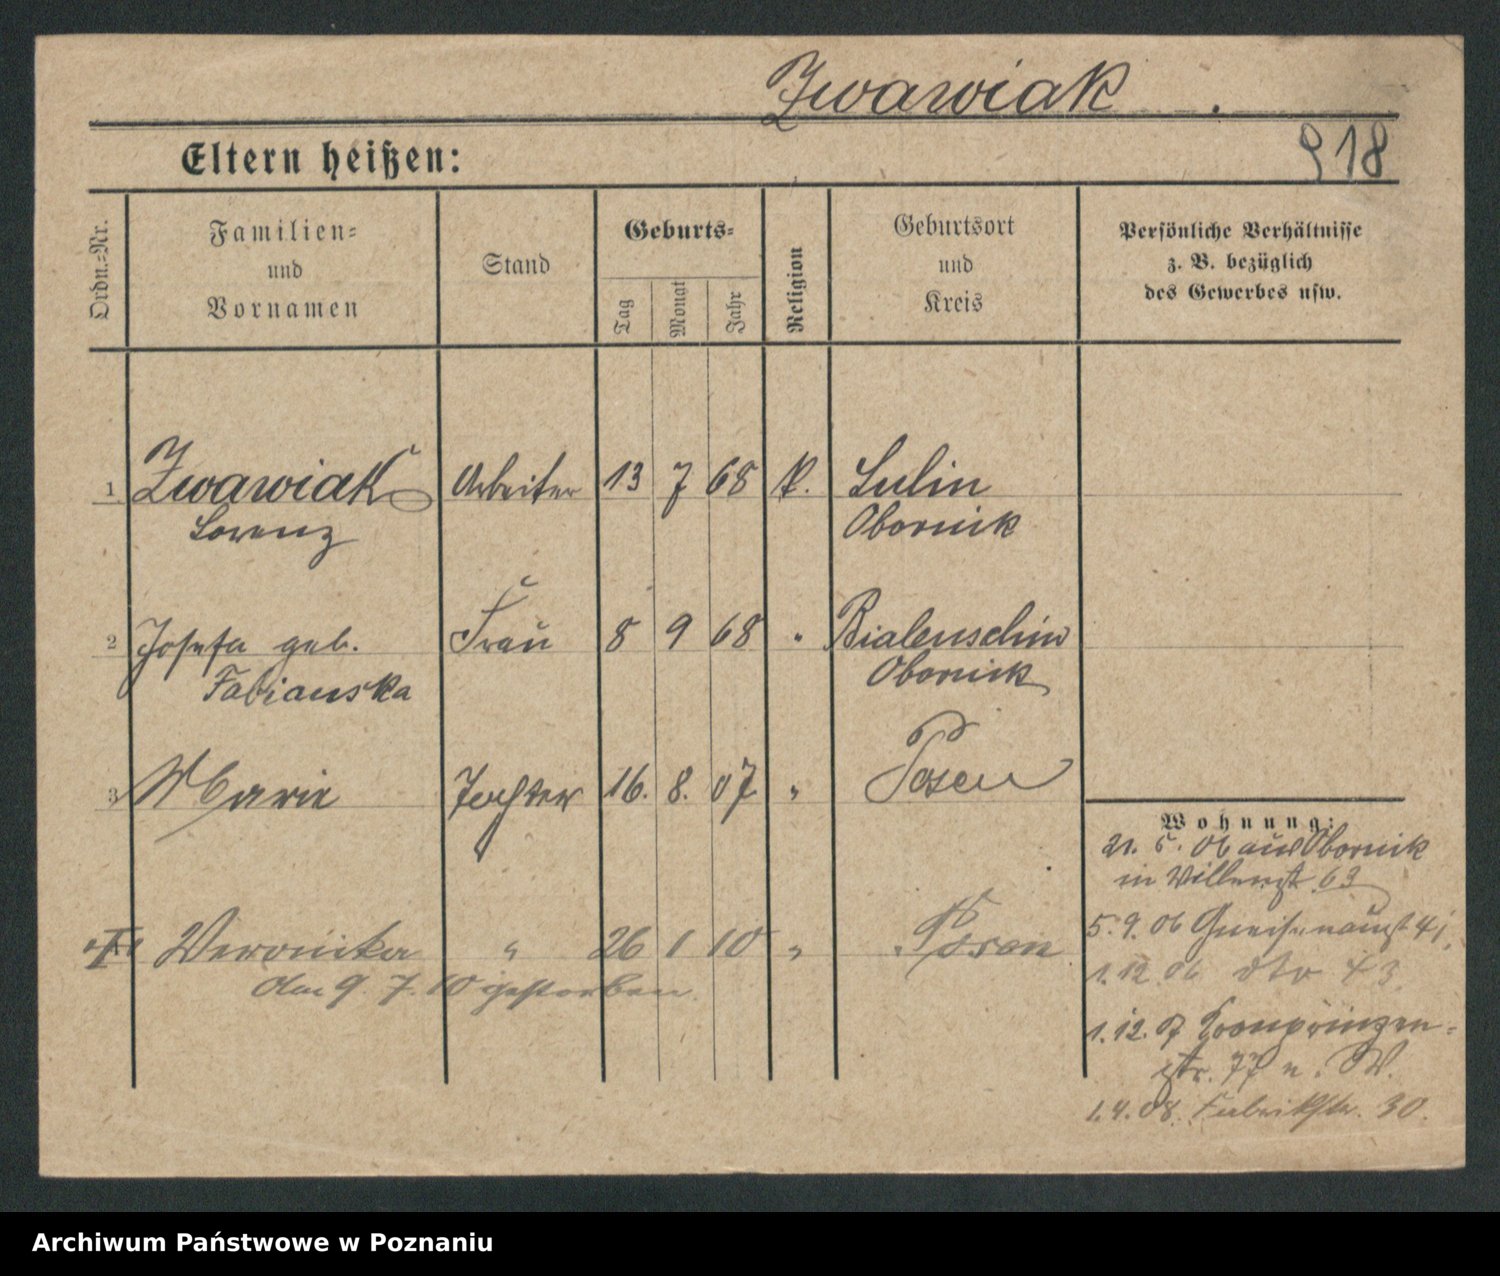 Zwawiak.
Eltern heißen:
918
Ordn.-Nr.
Familien-
und
Vornamen
Stand
Geburts-
Tag
Monat
Jahr
Religion
Geburtsort
und
Kreis
Persönliche Verhältnisse
z. B. bezüglich
des Gewerbes usw.
1 Zwawiak Arbeiter 13 7 68 k. Lulin
Lorenz Obornik
2 Josefa geb. Frau 8 9 68 " Bialenschin
Fabianska Obornik
3 Marie Tochter 16. 8. 07 " Posen
Veronika " 26 1 10 " Posen
den 9. 7. 10 gestorben.
Wohnung:
21. 5. 06 aus Obornik
in 63
5. 9. 06 Gneisenaust 41,
1. 12. 06 dto 43
1. 12. 07 Kronprinzen-
str. 77 n. W.
1. 4. 08. Fabrikstr. 30.
Archiwum Państwowe w Poznaniu